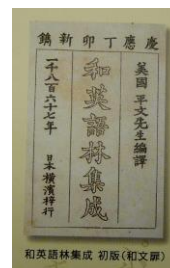 慶應丁卯新鐫
美國 平文先生編譯
和英語林集成
一千八百六十七年
日本橫濱梓行
和英語林集成 初版(和文扉)